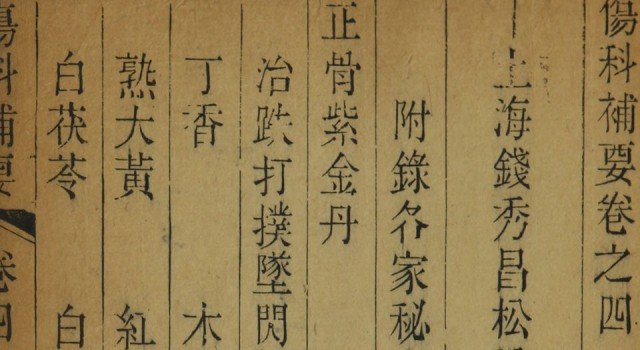 傷科補要卷之四
上海錢秀昌松
附錄各家秘
正骨紫金丹
治跌打撲墜閃
丁香 木
熟大黃 紅
白茯苓 白
傷科補要 卷四